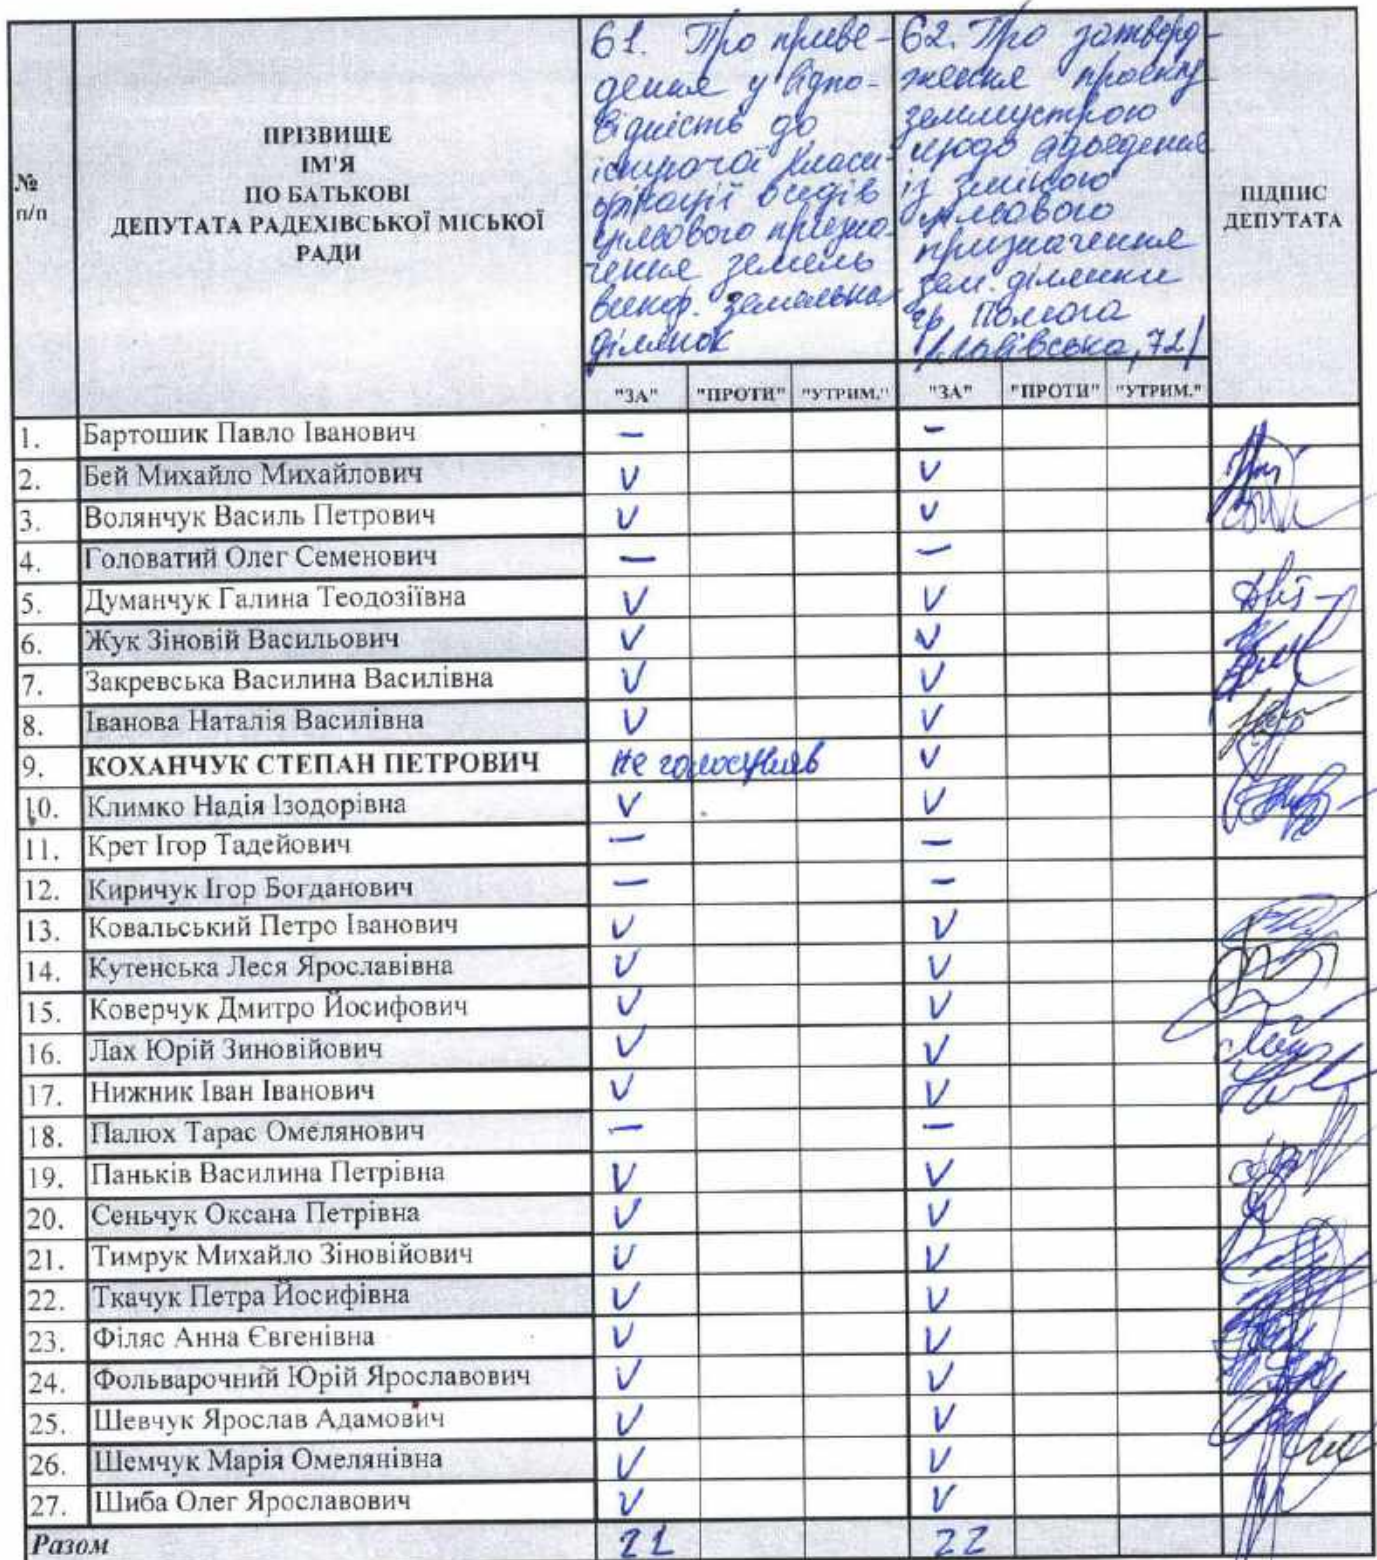 №
п/п
ПРІЗВИЩЕ
ІМ'Я
ПО БАТЬКОВІ
ДЕПУТАТА РАДЕХІВСЬКОЇ МІСЬКОЇ
РАДИ
61. Про приве-
дення у відпо-
відність до
існуючої класи-
фікації видів
цільового призна-
чення земель
земельних
ділянок
62. Про затверд-
ження проекту
землеустрою
щодо відведення
із зміною
цільового
призначення
зем. ділянки
гр.
/Львівська, 72/
ПІДПИС
ДЕПУТАТА
"ЗА" "ПРОТИ" "УТРИМ." "ЗА" "ПРОТИ" "УТРИМ."
1. Бартошик Павло Іванович – –
2. Бей Михайло Михайлович V V
3. Волянчук Василь Петрович V V
4. Головатий Олег Семенович – –
5. Думанчук Галина Теодозіївна V V
6. Жук Зіновій Васильович V V
7. Закревська Василина Василівна V V
8. Іванова Наталія Василівна V V
9. КОХАНЧУК СТЕПАН ПЕТРОВИЧ не голосував V
10. Климко Надія Ізодорівна V V
11. Крет Ігор Тадейович – –
12. Киричук Ігор Богданович – –
13. Ковальський Петро Іванович V V
14. Кутенська Леся Ярославівна V V
15. Коверчук Дмитро Йосифович V V
16. Лах Юрій Зиновійович V V
17. Нижник Іван Іванович V V
18. Палюх Тарас Омелянович – –
19. Паньків Василина Петрівна V V
20. Сеньчук Оксана Петрівна V V
21. Тимрук Михайло Зіновійович V V
22. Ткачук Петра Йосифівна V V
23. Філяс Анна Євгенівна V V
24. Фольварочний Юрій Ярославович V V
25. Шевчук Ярослав Адамович V V
26. Шемчук Марія Омелянівна V V
27. Шиба Олег Ярославович V V
Разом 21 22